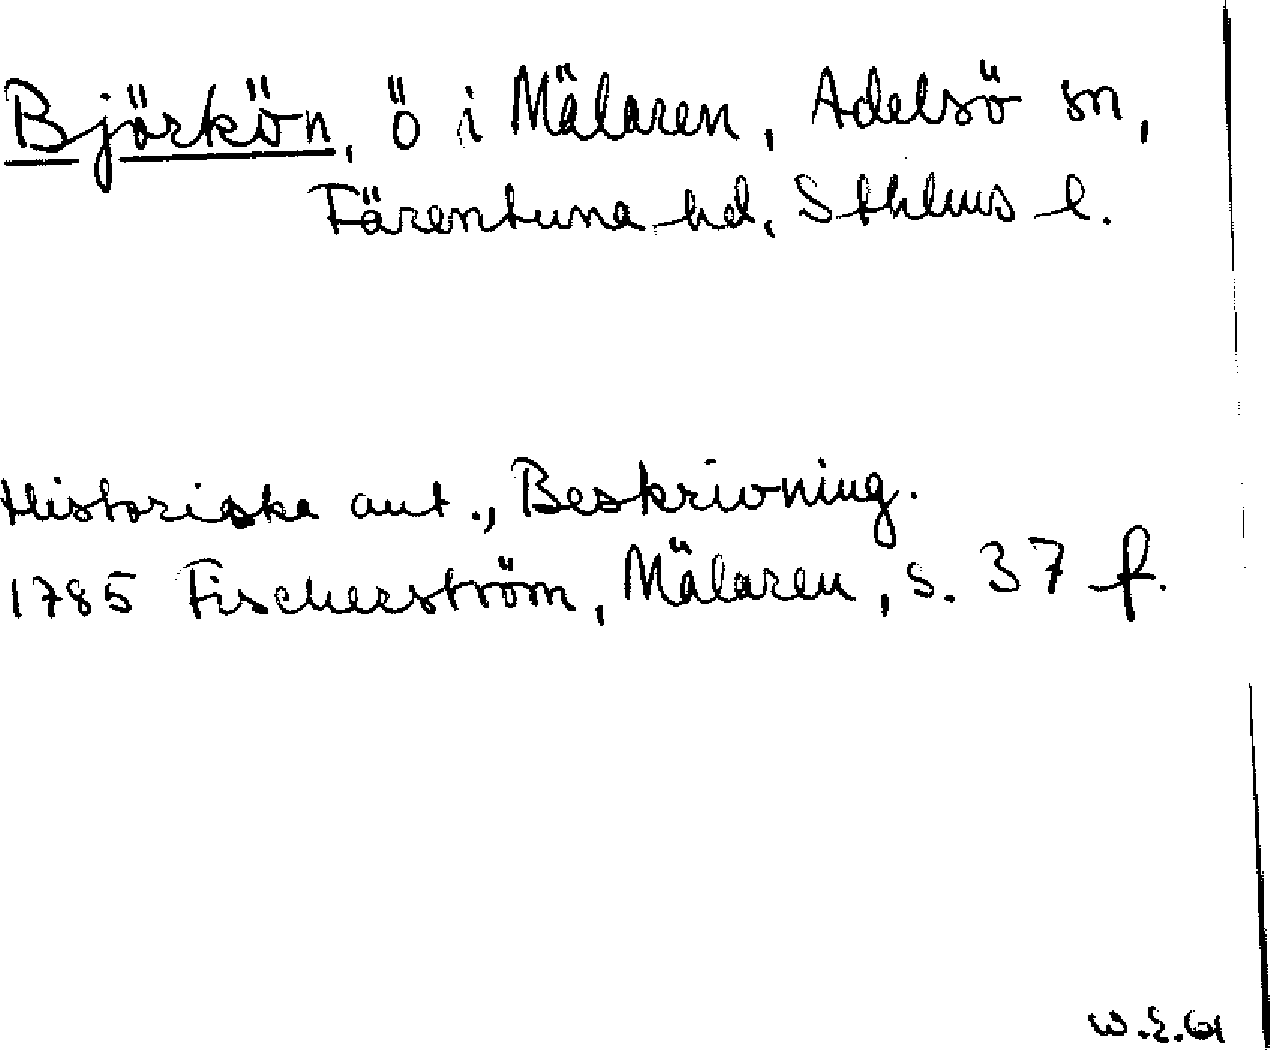 Björkön, ö i Mälaren, Adelsö sn,
Färentuna hd, Sthlms l.
Historiska ant., Beskrivning.
1785 Fischerström, Mälaren, s. 37 f.
W.E.61